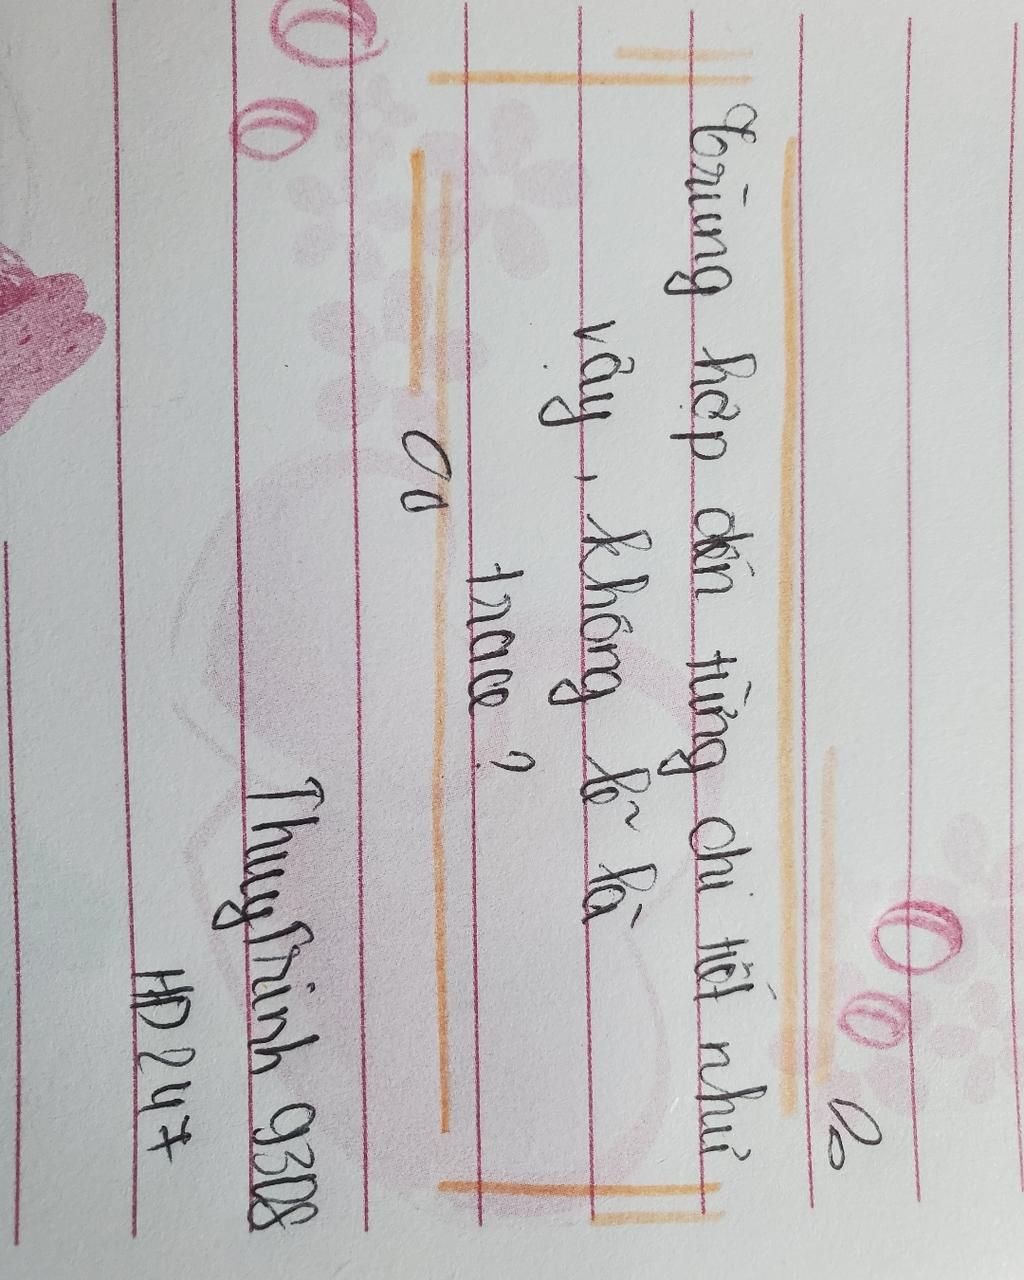 Trùng hợp đến từng chi tiết như
vậy, không lẽ là
trace?
ThuyTrinh 9308
HD247